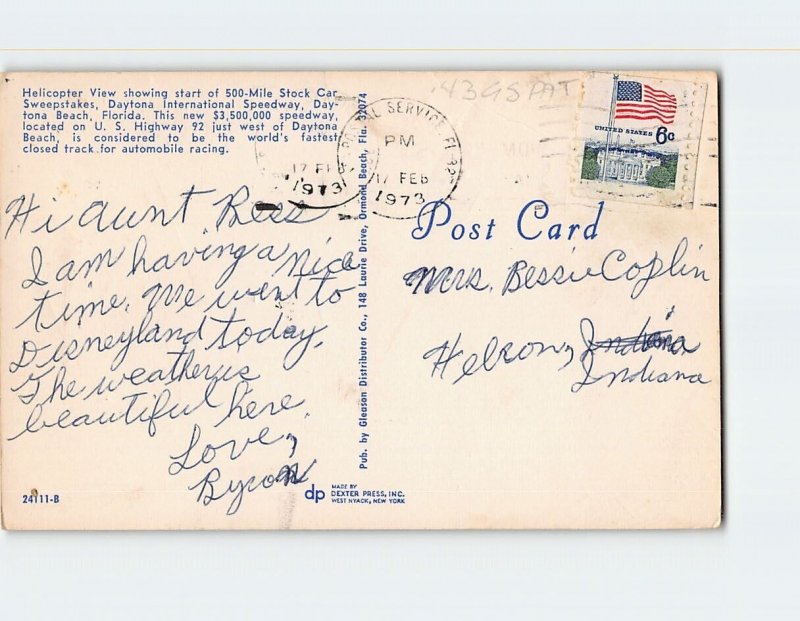 Helicopter View showing start of 500-Mile Stock Car
Sweepstakes, Daytona International Speedway, Day-
tona Beach, Florida. This new $3,500,000 speedway,
located on U. S. Highway 92 just west of Daytona
Beach, is considered to be the world's fastest
closed track for automobile racing.
Hi Aunt Bess
I am having a nice
time. We went to
Disneyland today.
The weather is
beautiful here.
Love,
Byron
24111-B
Pub. by Gleason Distributor Co., 148 Laurie Drive, Ormond Beach, Fla. 32074
dp
MADE BY
DEXTER PRESS, INC.
WEST NYACK, NEW YORK
17 FEB
1973
POSTAL SERVICE FL
PM
17 FEB
1973
UNITED STATES 6c
Post Card
Mrs. Bessie Coplin
Hebron, Indiana
Indiana